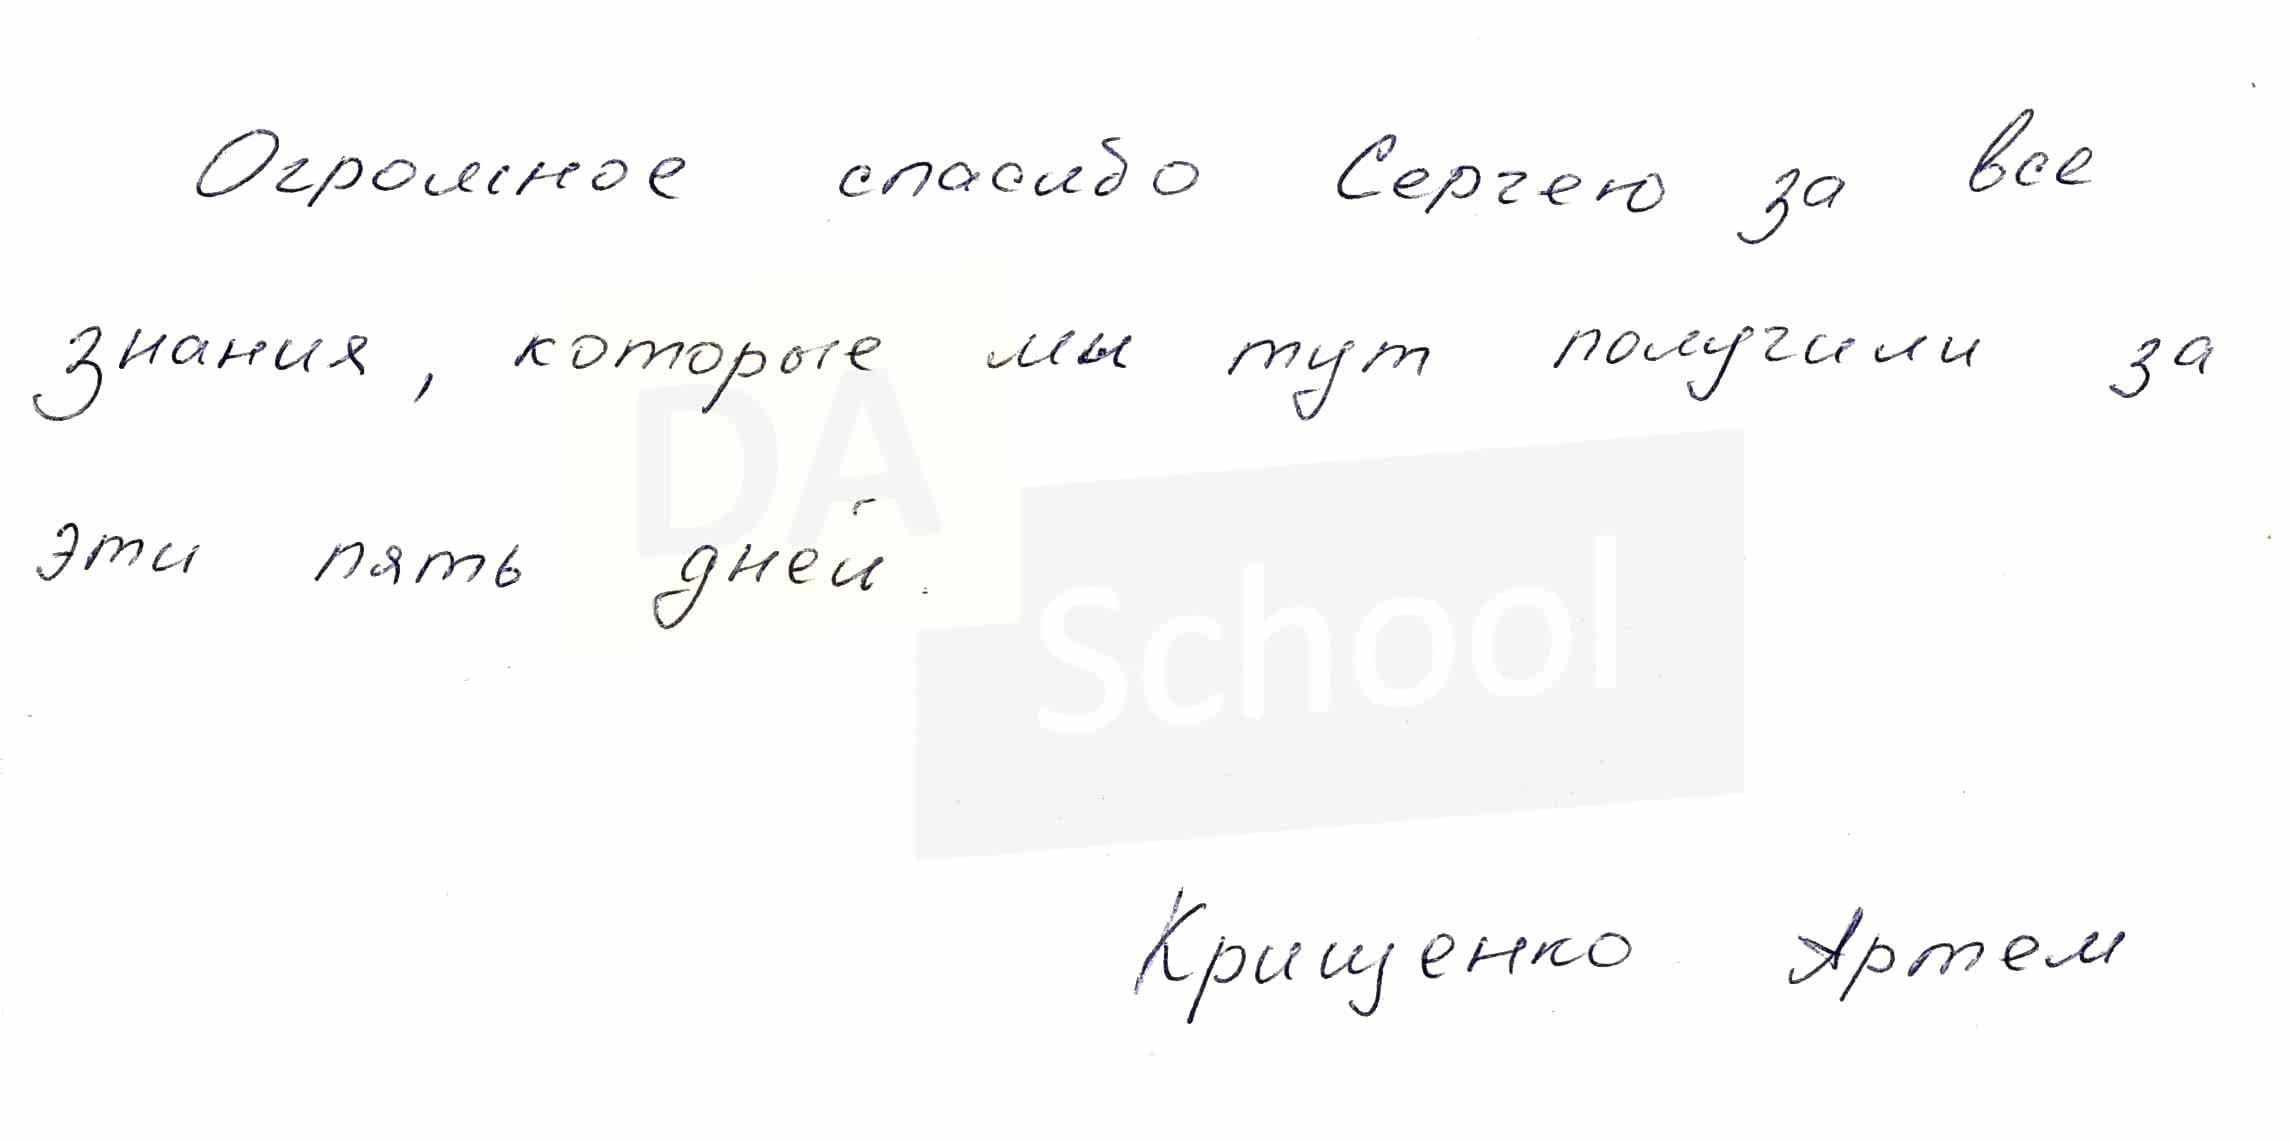 Огромное спасибо Сергею за все
знания, которые мы тут получили за
эти пять дней.
DA
School
Крищенко Артем